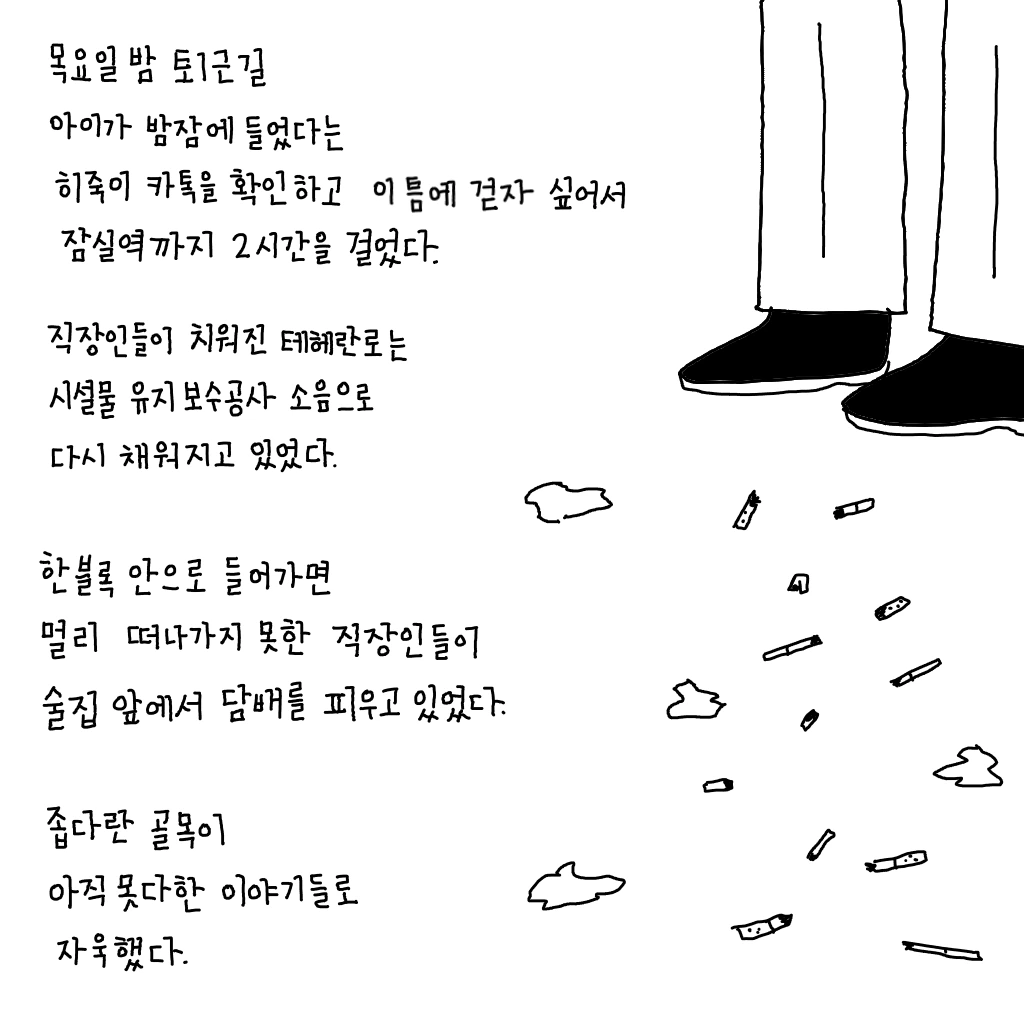 목요일 밤 퇴근길
아이가 밤잠에 들었다는
히죽이 카톡을 확인하고 이 틈에 걷자 싶어서
잠실역까지 2시간을 걸었다.
직장인들이 치워진 테헤란로는
시설물 유지보수공사 소음으로
다시 채워지고 있었다.
한블록 안으로 들어가면
멀리 떠나가지 못한 직장인들이
술집 앞에서 담배를 피우고 있었다.
좁다란 골목이
아직 못다한 이야기들로
자욱했다.